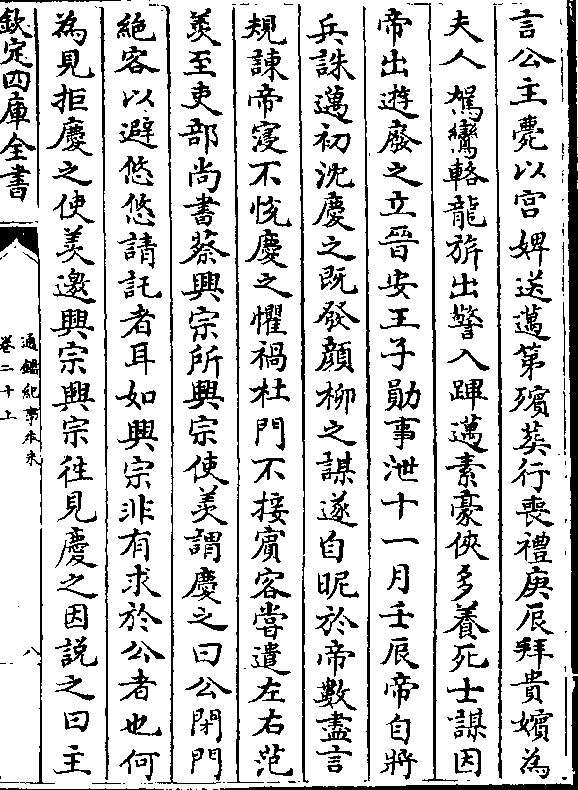 言公主薨以宫婢送邁第殯葬行喪禮庚辰拜貴嬪為
夫人駕鸞輅龍旂出警入蹕邁素豪俠多養死士謀因
帝出遊廢之立晉安王子勛事泄十一月壬辰帝自將
兵誅邁初沈慶之既發顔柳之謀遂自昵於帝數盡言
規諫帝寖不悅慶之懼禍杜門不接賓客嘗遣左右范
羨至吏部尚書蔡興宗所興宗使羨謂慶之曰公閉門
絶客以避悠悠請託者耳如興宗非有求於公者也何
為見拒慶之使羨邀興宗興宗徃見慶之因説之曰主
欽定四庫全書
通鑑紀事本末
卷二十上
八